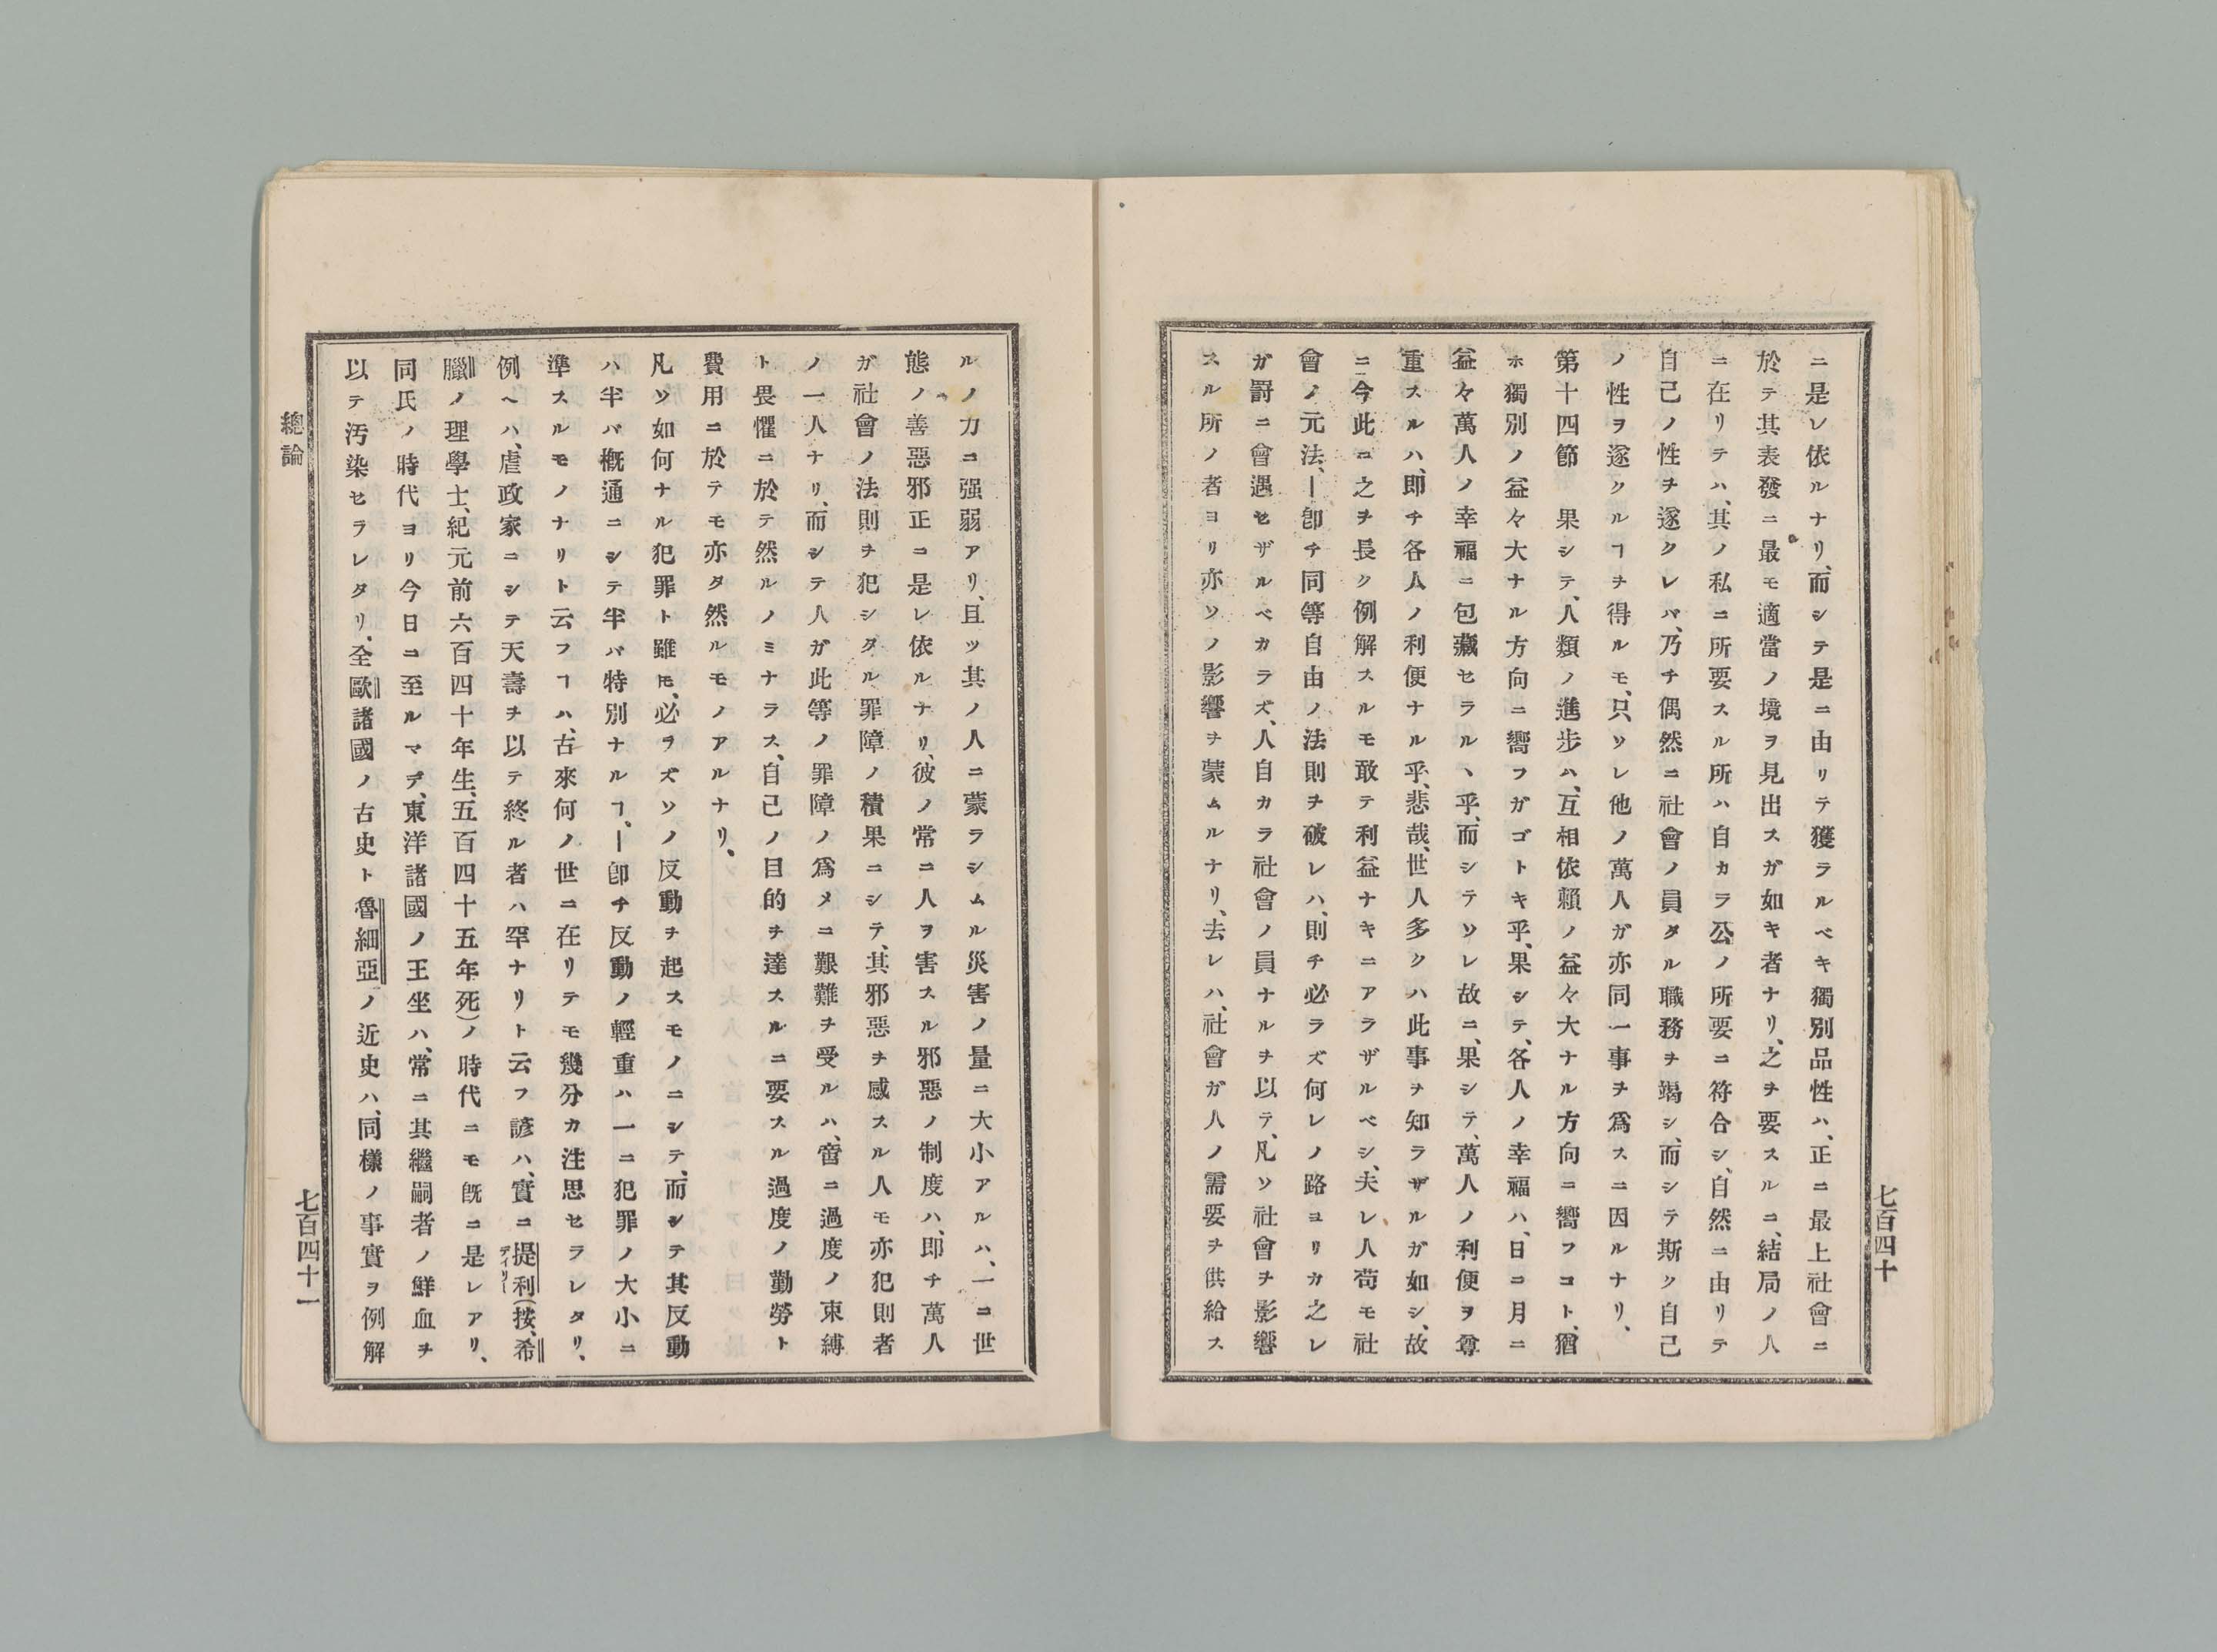 ニ是レ依ルナリ、而シテ是ニ由リテ獲ラルベキ獨別品性ハ、正ニ最上社會ニ
於テ其表發ニ最モ適當ノ境ヲ見出スガ如キ者ナリ、之ヲ要スルニ、結局ノ人
ニ在リテハ、其ノ私ニ所要スル所ハ自カラ公ノ所要ニ符合シ、自然ニ由リテ
自己ノ性ヲ遂クレバ、乃チ偶然ニ社會ノ員タル職務ヲ竭シ、而シテ斯ク自己
ノ性ヲ遂クルヿヲ得ルモ、只ソレ他ノ萬人ガ亦同一事ヲ爲スニ因ルナリ、
第十四節 果シテ、人類ノ進步ハ、互相依賴ノ益々大ナル方向ニ嚮フコト、猶
ホ獨別ノ益々大ナル方向ニ嚮フガゴトキ乎、果シテ、各人ノ幸福ハ、日ニ月ニ
益々萬人ノ幸福ニ包藏セラルヽ乎、而シテソレ故ニ、果シテ、萬人ノ利便ヲ尊
重スルハ、即チ各人ノ利便ナル乎、悲哉、世人多クハ此事ヲ知ラザルガ如シ、故
ニ今此ニ之ヲ長ク例解スルモ敢テ利益ナキニアラザルベシ、夫レ人苟モ社
會ノ元法、―卽チ同等自由ノ法則ヲ破レハ、則チ必ラズ何レノ路ヨリカ之レ
ガ罸ニ會遇セザルベカラズ、人自カラ社會ノ員ナルヲ以テ、凡ソ社會ヲ影響
スル所ノ者ヨリ亦ソノ影響ヲ蒙ムルナリ、去レハ、社會ガ人ノ需要ヲ供給ス
七百四十
ルノ力ニ强弱アリ、且ツ其ノ人ニ蒙ラシムル災害ノ量ニ大小アルハ、一ニ世
態ノ善惡邪正ニ是レ依ルナリ、彼ノ常ニ人ヲ害スル邪惡ノ制度ハ、即チ萬人
ガ社會ノ法則ヲ犯シタル罪障ノ積果ニシテ、其邪惡ヲ感スル人モ亦犯則者
ノ一人ナリ、而シテ人ガ此等ノ罪障ノ爲メニ艱難ヲ受ルハ、啻ニ過度ノ束縛
ト畏懼ニ於テ然ルノミナラス、自己ノ目的ヲ達スルニ要スル過度ノ勤勞ト
費用ニ於テモ亦タ然ルモノアルナリ、
凡ソ如何ナル犯罪ト雖𪜈、必ラズソノ反動ヲ起スモノニシテ、而シテ其反動
ハ半バ槪通ニシテ半バ特別ナルヿ、―卽チ反動ノ輕重ハ一ニ犯罪ノ大小ニ
準スルモノナリト云フヿハ、古來何ノ世ニ在リテモ幾分カ注思セラレタリ、
例ヘハ、虐政家ニシテ天壽ヲ以テ終ル者ハ罕ナリト云フ諺ハ、實ニ提利ディリー(按、希
臘ノ理學士、紀元前六百四十年生、五百四十五年死)ノ時代ニモ旣ニ是レアリ、
同氏ノ時代ヨリ今日ニ至ルマデ、東洋諸國ノ王坐ハ、常ニ其繼嗣者ノ鮮血ヲ
以テ汚染セラレタリ、全歐諸國ノ古史ト魯細亞ノ近史ハ、同樣ノ事實ヲ例解
總論
七百四十一